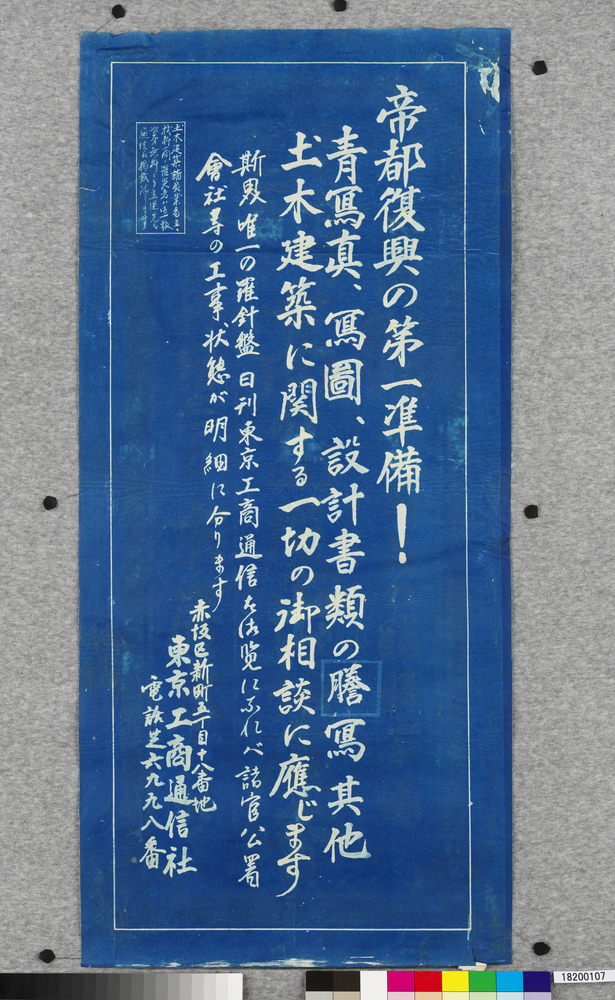 帝都復興の第一準備！
青冩真、冩圖、設計書類の謄冩其他
土木建築に関する一切の御相談に應じます
斯界唯一の羅針盤日刊東京工商通信を御覧になれバ諸官公署
會社等の工事、状態が明細に分ります
赤坂区新町五丁目十八番地
東京工商通信社
電話芝六九九八番
土木建築請負業者
18200107